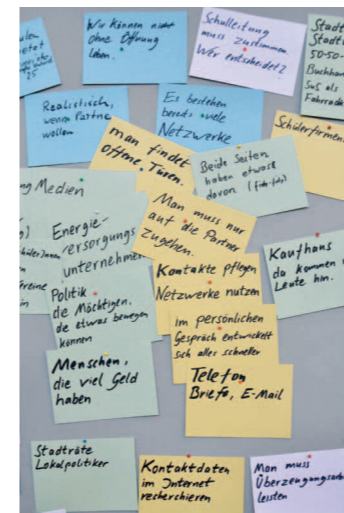 Wir können nicht
ohne Öffnung
leben.
Schulleitung
muss zustimmen
Wer entscheidet?
50-50-
SuS als
Realistisch,
wenn Partne
wollen
Es bestehen
bereits viele
Netzwerke
Schülerfirmen
man findet
offene Türen.
Beide Seiten
haben etwas
davon
Medien
Energie-
versorgungs
unternehmen
Man muss nur
auf die Partner
zugehen.
Kaufhaus
da kommen
Leute hin.
Politik
die Mächtigen,
die etwas bewegen
können
Kontakte pflegen
Netzwerke nutzen
im persönlichen
Gespräch entwickelt
sich alles schneller
Menschen,
die viel Geld
haben
Telefon
Briefe, E-Mail
Stadträte
Lokalpolitiker
Kontaktdaten
im Internet
recherchieren
Man muss
Überzeugungsarb
leisten